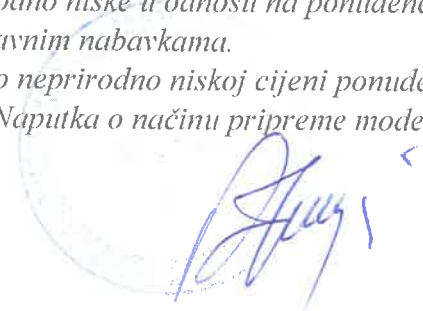 niske u odnosu na ponuđene
avnim nabavkama.
o neprirodno niskoj cijeni ponude
Naputka o načinu pripreme mode